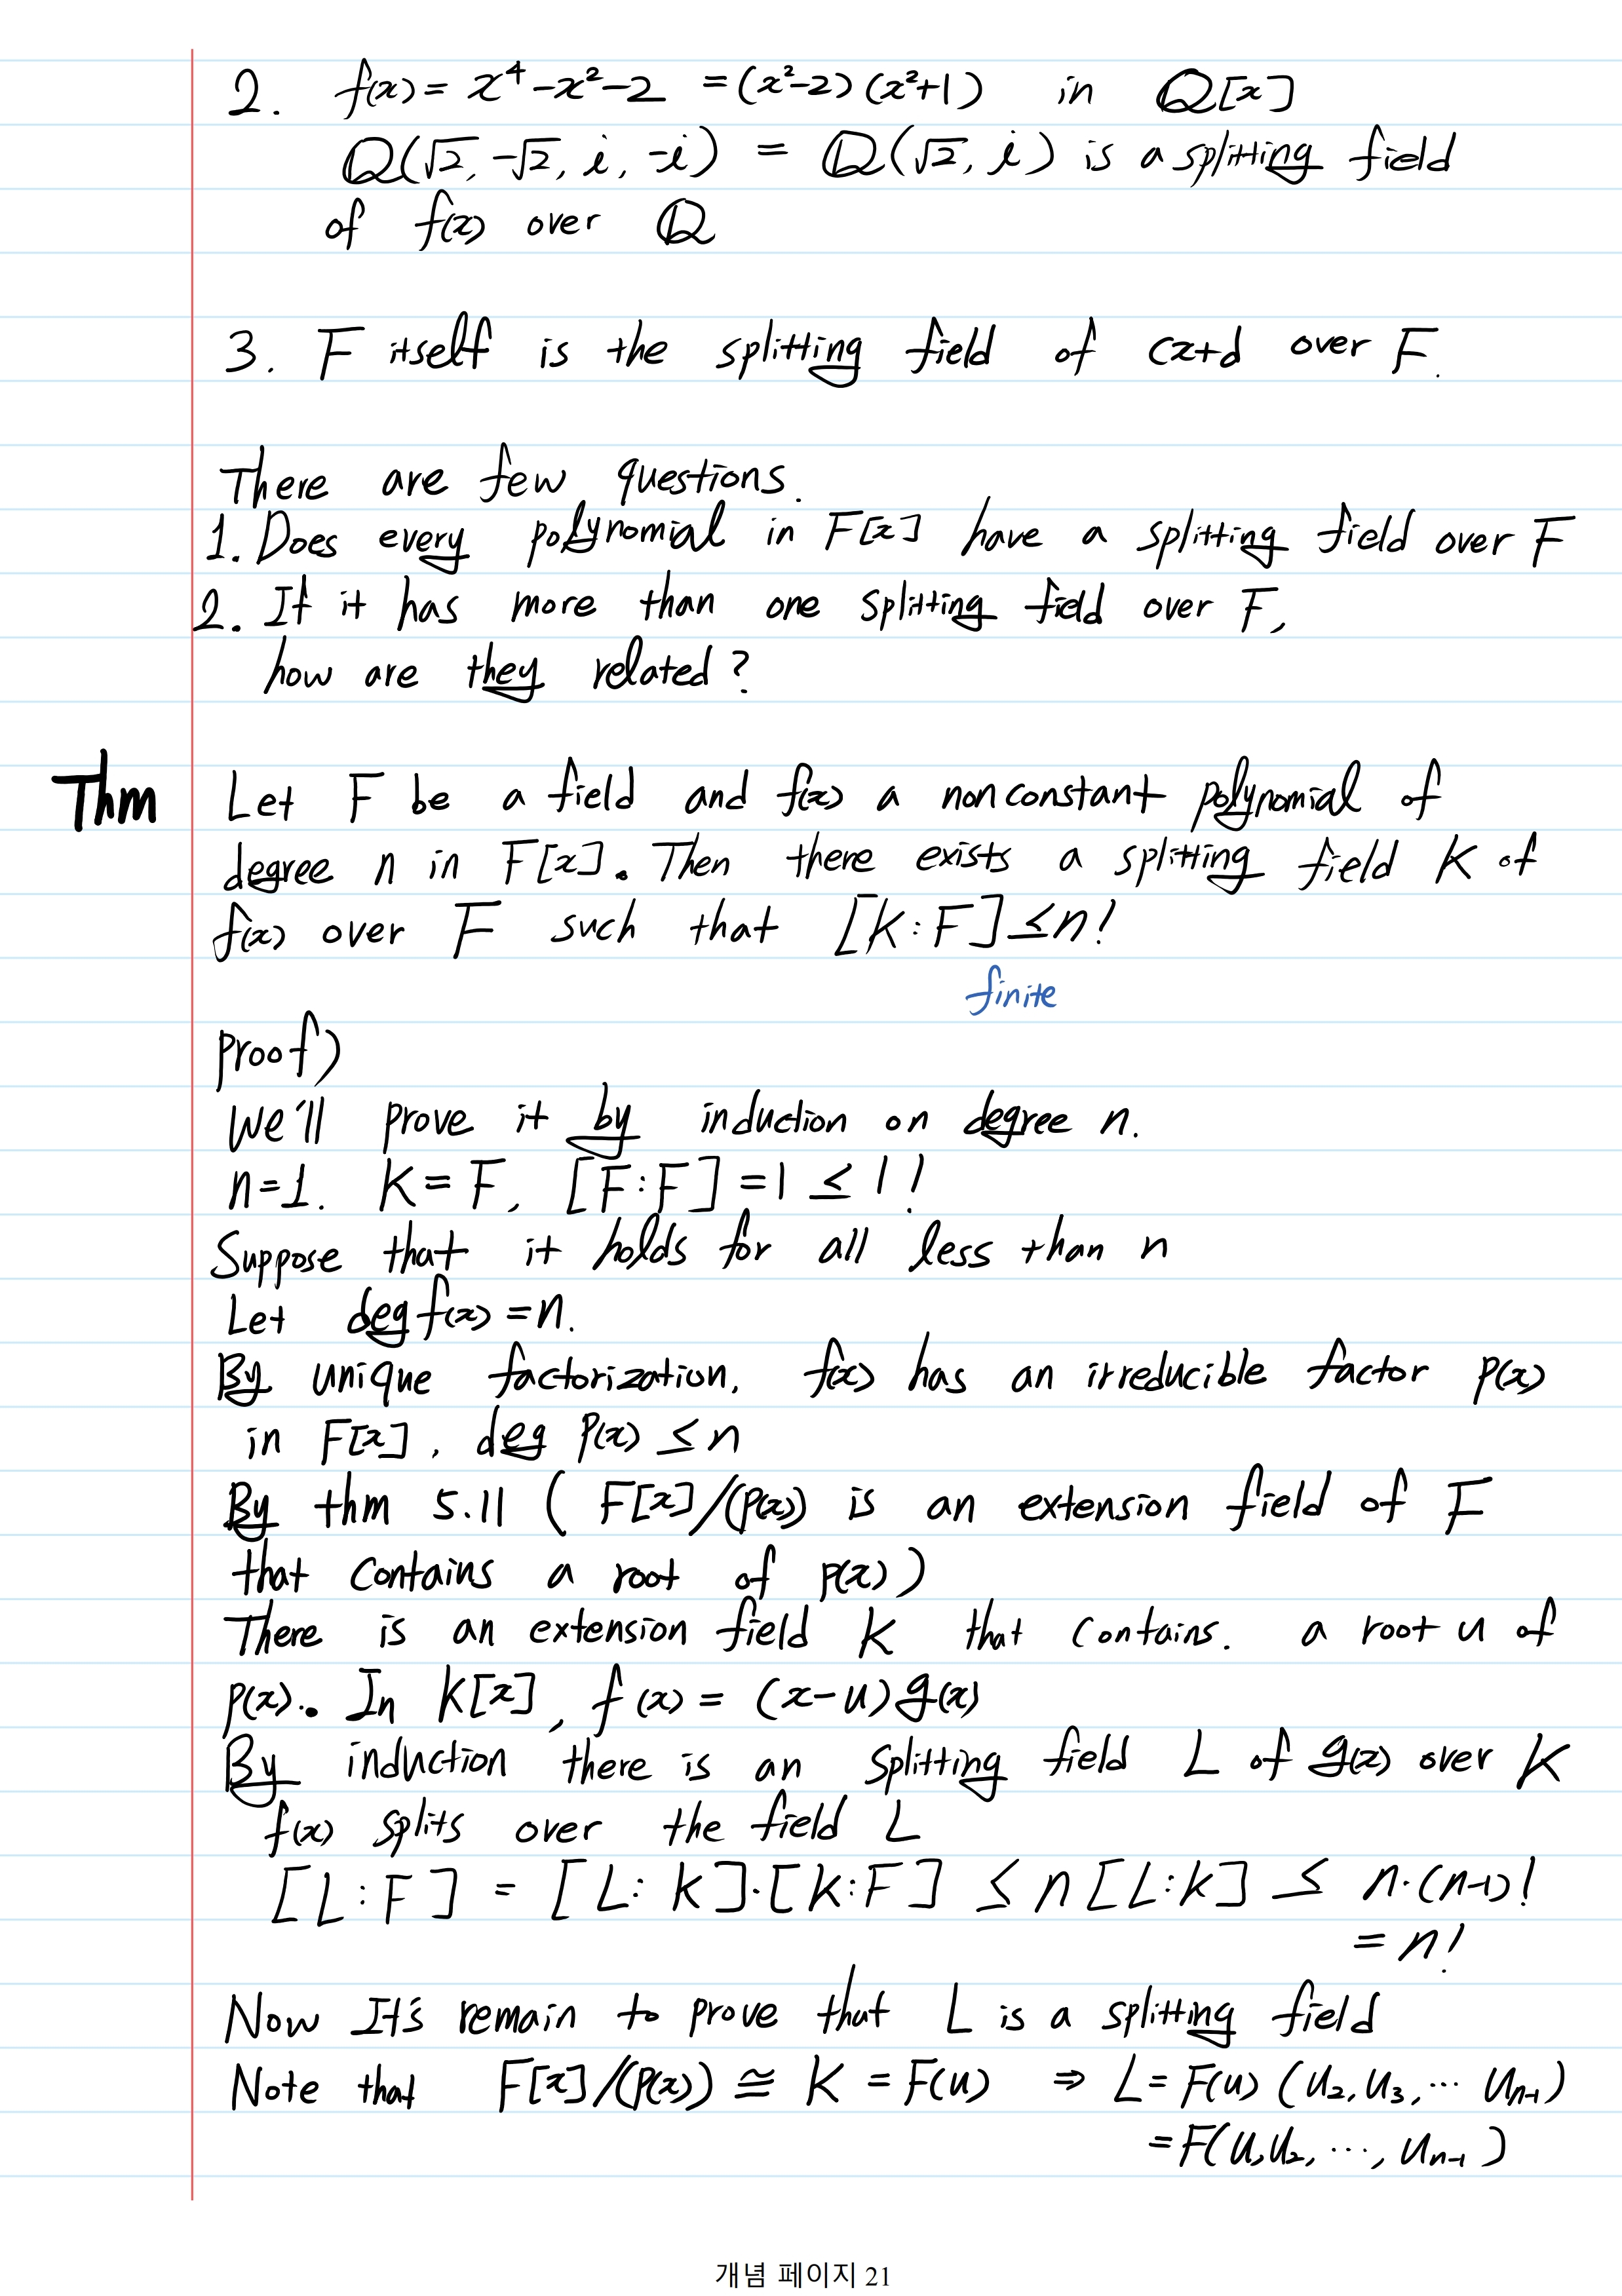 2. f(x) = x⁴-x²-2 =(x²-2)(x²+1) in Q[x]
Q(√2, -√2, i, -i) = Q(√2, i) is a splitting field
of f(x) over Q
3. F itself is the splitting field of cx+d over F.
There are few questions.
1. Does every polynomial in F[x] have a splitting field over F
2. If it has more than one splitting field over F,
how are they related?
Thm Let F be a field and f(x) a nonconstant polynomial of
degree n in F[x]. Then there exists a splitting field K of
f(x) over F such that [K:F]≤n!
finite
proof)
We'll prove it by induction on degree n.
n=1. K=F, [F:F]=1 ≤ 1!
Suppose that it holds for all less than n
Let deg f(x) =n.
By unique factorization, f(x) has an irreducible factor p(x)
in F[x], deg p(x) ≤ n
By thm 5.11 ( F[x]/(p(x)) is an extension field of F
that contains a root of p(x) )
There is an extension field K that contains. a root u of
p(x).. In K[x], f(x) = (x-u)g(x)
By induction there is an splitting field L of g(x) over K
f(x) splits over the field L
[L:F] = [L:K]·[K:F] ≤ n[L:K] ≤ n·(n-1)!
= n!
Now It's remain to prove that L is a splitting field
Note that F[x]/(p(x)) ≅ K = F(u) ⇒ L= F(u) (u₂, u₃, ⋯ uₙ₋₁)
=F(u,u₂, ⋯, uₙ₋₁)
개념 페이지 21